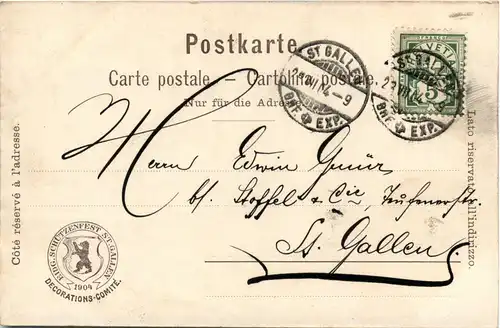 Postkarte.
Carte postale. — Cartolina postale.
Nur für die Adresse
Côté réservé à l'adresse.
Lato riservato all'indirizzo.
FRANCO
HELVETIA
5
ST GALLEN
–9
BRF. EXP.
ST GALLEN
BRF. EXP.
Herrn Edwin
bl. Stoffel & Cie, Teufenerstr.
St. Gallen.
EIDG. SCHÜTZENFEST ST. GALLEN
1904
DECORATIONS-COMITÉ.